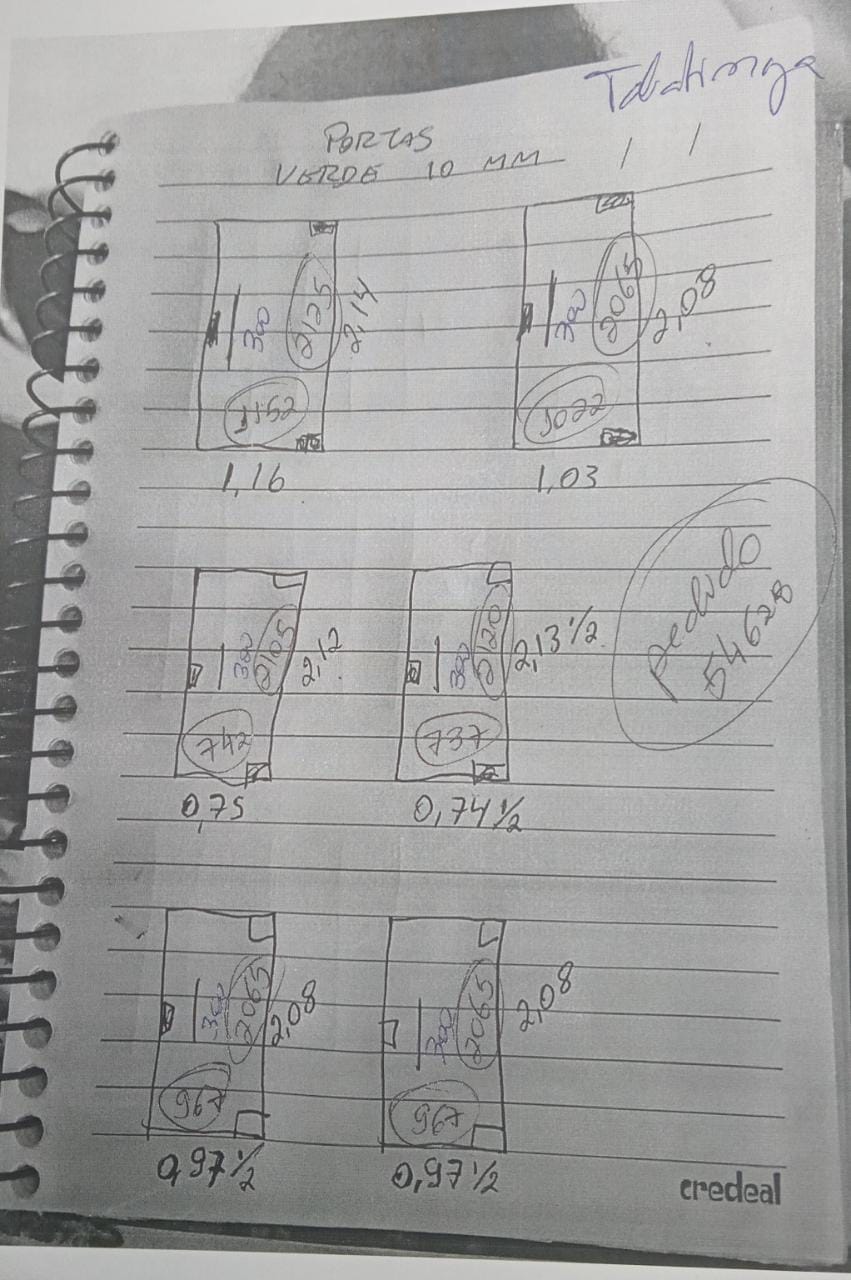 Tabatinga
PORTAS
VERDE 10 MM / /
300 2125 2,14
1152
1,16
300 2065 2,08
1022
1,03
pedido
54628
300 2105 2,12
742
0,75
300 2120 2,13 1/2
737
0,74 1/2
300 2065 2,08
967
0,97 1/2
300 2065 2,08
967
0,97 1/2
credeal